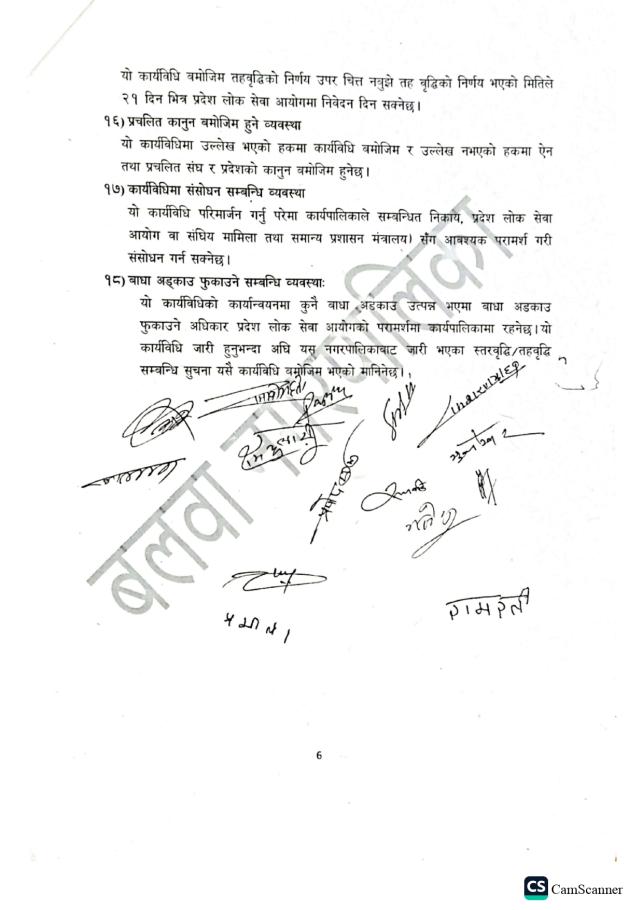 यो कार्यविधि बमोजिम तहवृद्धिको निर्णय उपर चित्त नबुझे तह वृद्धिको निर्णय भएको मितिले
२१ दिन भित्र प्रदेश लोक सेवा आयोगमा निवेदन दिन सक्नेछ।
१६) प्रचलित कानुन बमोजिम हुने व्यवस्था
यो कार्यविधिमा उल्लेख भएको हकमा कार्यविधि बमोजिम र उल्लेख नभएको हकमा ऐन
तथा प्रचलित संघ र प्रदेशको कानुन बमोजिम हुनेछ।
१७) कार्यविधिमा संसोधन सम्बन्धि व्यवस्था
यो कार्यविधि परिमार्जन गर्नु परेमा कार्यपालिकाले सम्बन्धित निकाय, प्रदेश लोक सेवा
आयोग वा संघिय मामिला तथा समान्य प्रशासन मन्त्रालय) सँग आवश्यक परामर्श गरी
संसोधन गर्न सक्नेछ।
१८) बाधा अड्काउ फुकाउने सम्बन्धि व्यवस्थाः
यो कार्यविधिको कार्यान्वयनमा कुनै बाधा अडकाउ उत्पन्न भएमा बाधा अडकाउ
फुकाउने अधिकार प्रदेश लोक सेवा आयोगको परामर्शमा कार्यपालिकामा रहनेछ।यो
कार्यविधि जारी हुनुभन्दा अघि यस नगरपालिकाबाट जारी भएका स्तरवृद्धि/तहवृद्धि
सम्बन्धि सुचना यसै कार्यविधि बमोजिम भएको मानिनेछ।
बलवा नगरपालिका
6
CS CamScanner